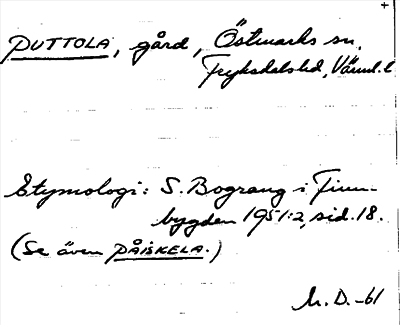 PUTTOLA, gård, Östmarks sn,
Fryksdalshd, Värml. l
Etymologi: S. Bograng i Finn-
bygden 1951:2, sid. 18.
(Se även PÅISKELA.)
M. D. -61